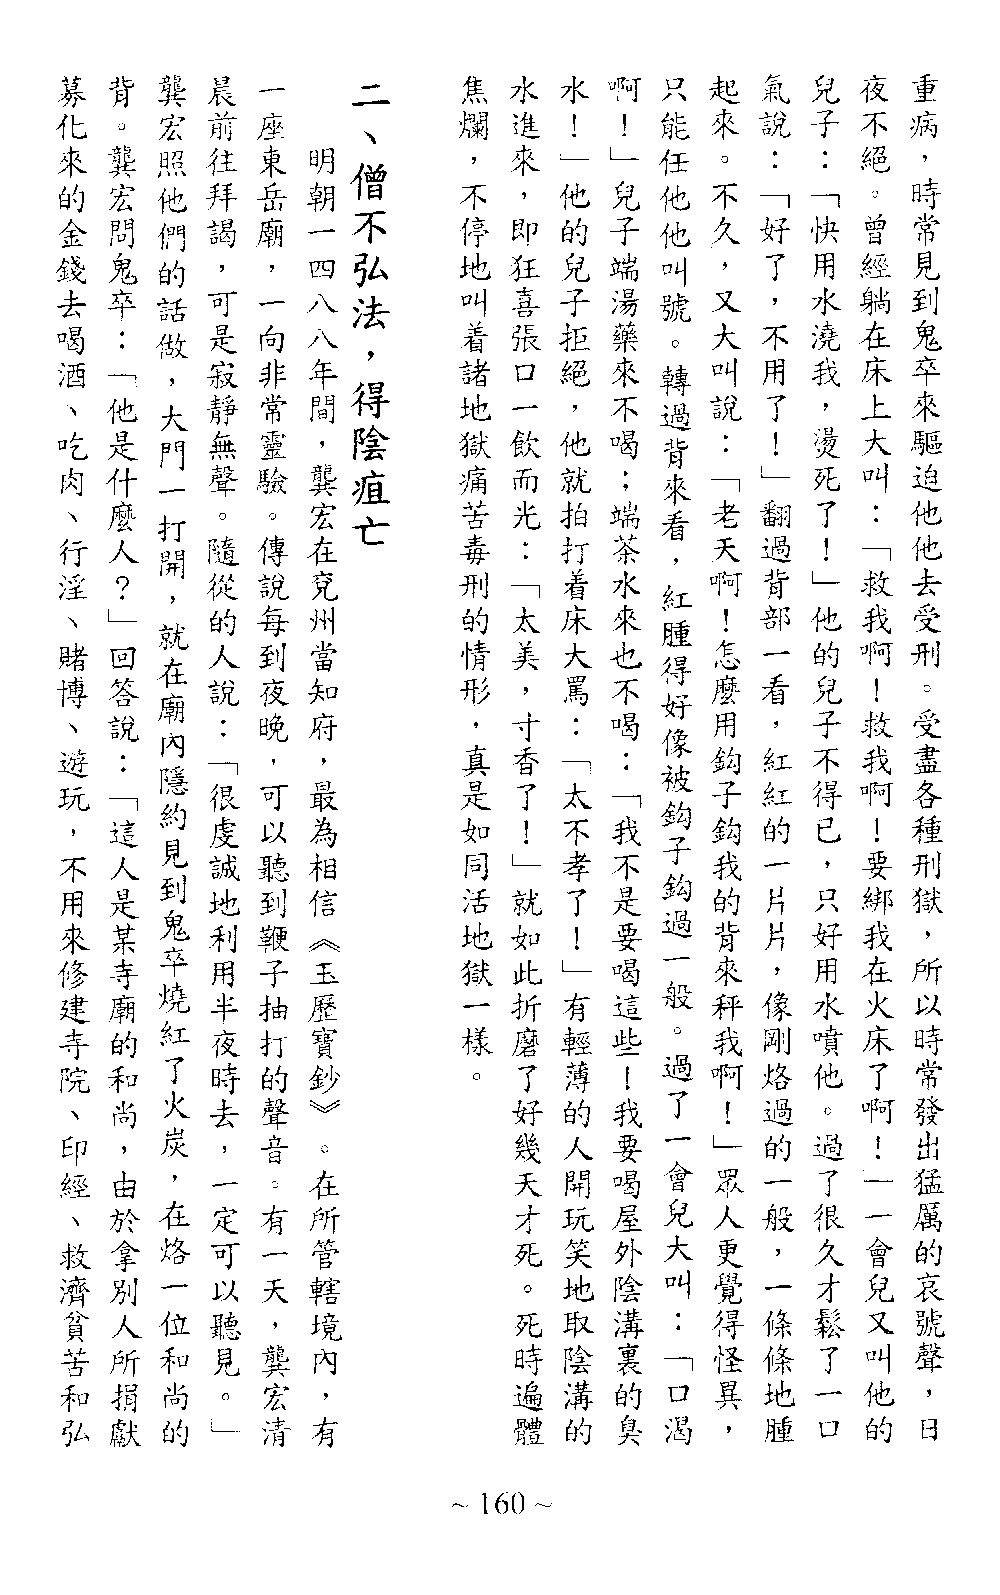 重病，時常見到鬼卒來驅迫他去受刑。受盡各種刑獄，所以時常發出猛厲的哀號聲，日
夜不絕。曾經躺在床上大叫：「救我啊！救我啊！要綁我在火床了啊！」一會兒又叫他的
兒子：「快用水澆我，燙死了！」他的兒子不得已，只好用水噴他。過了很久才鬆了一口
氣說：「好了，不用了！」翻過背部一看，紅紅的一片片，像剛烙過的一般，一條條地腫
起來。不久，又大叫說：「老天啊！怎麼用鈎子鈎我的背來秤我啊！」眾人更覺得怪異，
只能任他他叫號。轉過背來看，紅腫得好像被鈎子鈎過一般。過了一會兒大叫：「口渴
啊！」兒子端湯藥來不喝；端茶水來也不喝：「我不是要喝這些！我要喝屋外陰溝裏的臭
水！」他的兒子拒絕，他就拍打着床大罵：「太不孝了！」有輕薄的人開玩笑地取陰溝的
水進來，即狂喜張口一飲而光：「太美，寸香了！」就如此折磨了好幾天才死。死時遍體
焦爛，不停地叫着諸地獄痛苦毒刑的情形，真是如同活地獄一樣。
二、僧不弘法，得陰疽亡
明朝一四八八年間，龔宏在兗州當知府，最為相信《玉歷寶鈔》。在所管轄境內，有
一座東岳廟，一向非常靈驗。傳說每到夜晚，可以聽到鞭子抽打的聲音。有一天，龔宏清
晨前往拜謁，可是寂靜無聲。隨從的人說：「很虔誠地利用半夜時去，一定可以聽見。」
龔宏照他們的話做，大門一打開，就在廟內隱約見到鬼卒燒紅了火炭，在烙一位和尚的
背。龔宏問鬼卒：「他是什麼人？」回答說：「這人是某寺廟的和尚，由於拿別人所捐獻
募化來的金錢去喝酒、吃肉、行淫、賭博、遊玩，不用來修建寺院、印經、救濟貧苦和弘
~ 160 ~